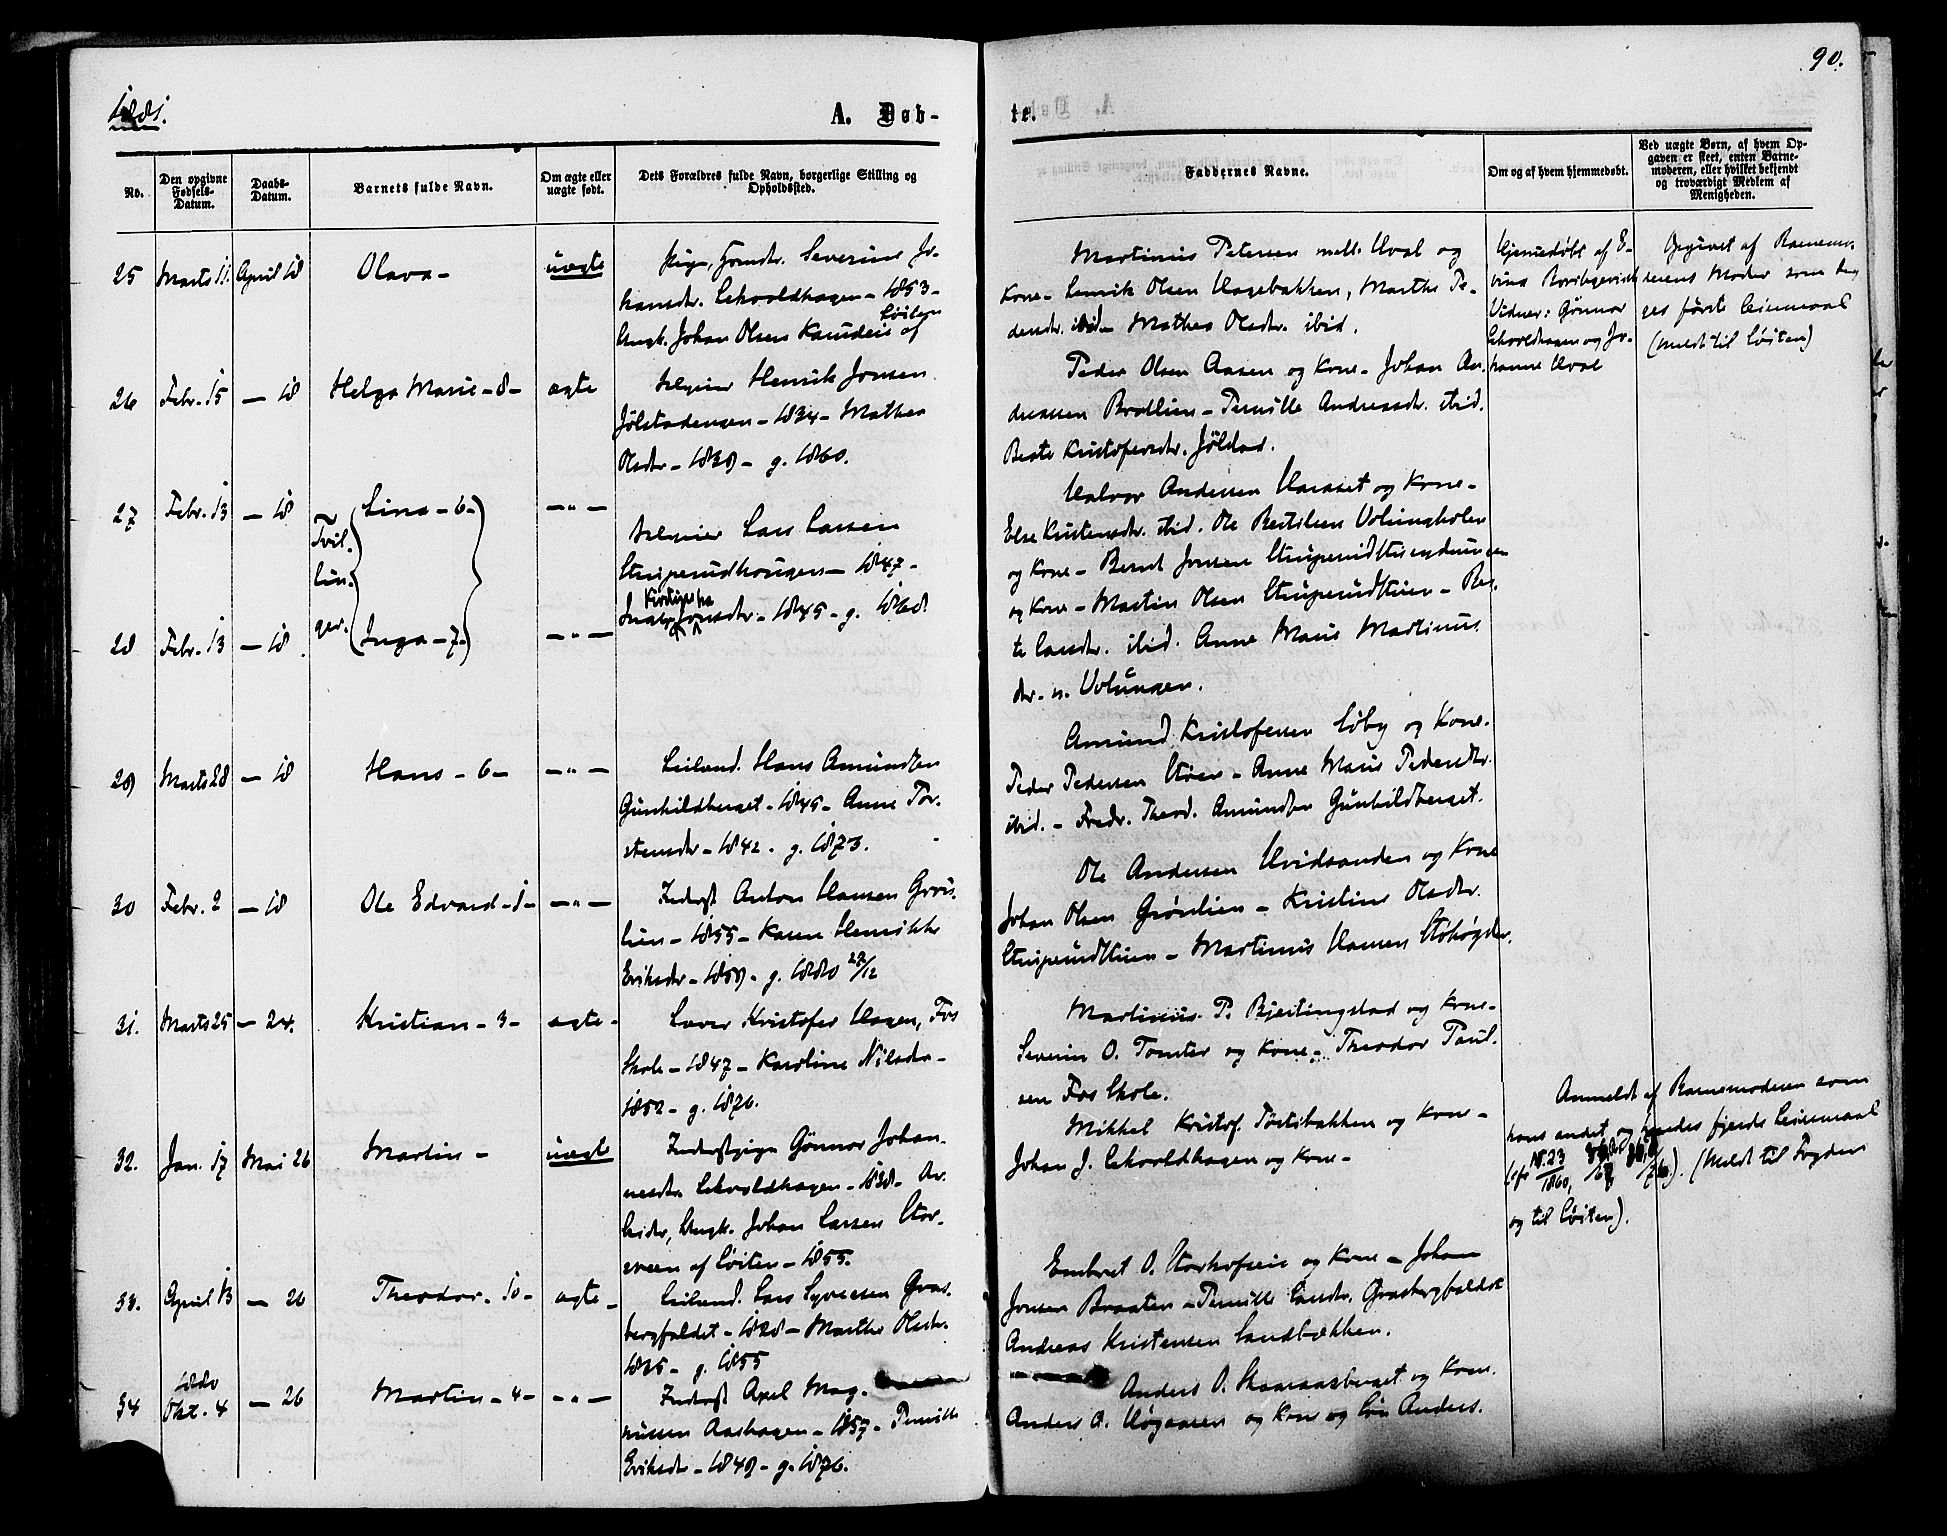 90.
1881.
A. Døb-
te.
No.
Den opgivne Fødsels-Datum.
Daabs-Datum.
Barnets fulde Navn.
Om ægte eller uægte født.
Dets Forældres fulde Navn, borgerlige Stilling og Opholdssted.
Faddernes Navne.
Om og af hvem hjemmedøbt.
Ved uægte Børn, af hvem Opgaven er skeet, enten Barnemoderen, eller hvilket bekjendt og troværdigt Medlem af Menigheden.
25 Marts 11. April 18 Olava - uægte
Severine Jo-
hansdr. - 1853 -
Ungk. Johan Olsen af Løiten
Martinus Petersen Hval og
Kone - Henrik Olsen Hagebakken, Marthe Pe-
dersdr. ibid - Mathea Olsdr. ibid.
Hjemmedøbt af
Vidner: Gønnor
og Jo-
hanne Hval
Opgivet af Barnemo-
derens Moder som
første Leiermaal
(Meldt til Løiten)
26 Febr. 15 - 18 Helga Marie - 8 - ægte
Selveier Henrik Jonsen
Jølstadengen - 1834 - Mathea
Olsdr - 1839 - g. 1860.
Peder Olsen Aasen og Kone - Johan An-
dreassen Bratlien - Pernille Andreasdr. ibid.
Beate Kristofersdr. Jølstad.
27 Febr. 13 - 18 Lina - 6 - -"-
Tvil-
lin-
ger.
28 Febr. 13 - 18 Inga - 7 - -"-
Selveier Lars Larsen
Struperudhaugen - 1847 -
Jonsdr - 1845 - g. 1868
Halvor Andersen Haraset og Kone -
Else Kristensdr. ibid. Ole Bertilsen
og Kone - Bernt Jonsen
og Kone - Martin Olsen Struperudstuen - Bea-
te Larsdr. ibid. Anne Marie Martinus-
dr. n. Volungen.
29 Marts 28 - 18 Hans - 6 - -"-
Leilend. Hans Amundsen
Gunhildberget - 1845 - Anne Tor-
stensdr - 1842 - g. 1873.
Amund Kristofersen Løby og Kone -
Peder Pedersen Støen - Anne Marie Pedersdtr.
ibid. - Fredr. Theod. Amundsen Gunhildberget.
30 Febr. 2 - 18 Ole Edvard - 1 - -"-
Inderst Anton Hansen Grøn-
lien - 1855 - Karen Henrikke
Eriksdr - 1859 - g. 1880 27/12
Ole Andersen Hvidsanden og Kone
Johan Olsen Grønlien - Kristine Olsdr.
Struperudstuen - Martinus Hansen
31. Marts 25 - 24. Kristian - 3 - ægte -
Lærer Kristofer Hagen, Fos
Skole - 1847 - Karoline Nilsdr -
1852 - g. 1876.
Martinus P. Bjertingstad og Kone -
Severin O. Tomter og Kone - Theodor Paul-
sen Fos Skole.
32. Jan. 17 Mai 26 Martin - uægte
Inderstpige Gønnor Johan-
nesdr. - 1838 - Ar-
beider, Ungk. Johan Larsen Stor-
sveen af Løiten - 1855.
Mikkel Kristof. Tøstibakken og Kone -
Johan J. og Kone -
Anmeldt af Barnemoderen som
hans andet og hendes fjerde Leiermaal
(Meldt til Fogden
og til Løiten).
33. April 13 - 26 Theodor - 10 - ægte -
Leilend. Lars Syversen Gras-
bergfaldet - 1828 - Marthe Olsdr.
1835 - g. 1855
Embret O. Storhofseie og Kone - Johan
Jonsen Braaten - Pernille Larsdr. Grasbergfaldet
Andreas Kristensen Sandbækken.
34 1880 Okt. 4 - 26 Martin - 4 - -"-
Inderst Axel Mag-
nussen Aashagen - 1857 - Pernille
Eriksdr - 1849 - g. 1876.
Anders O. Skaaraasberget og Kone.
Anders A. Høgaasen og Kone og Søn Anders.